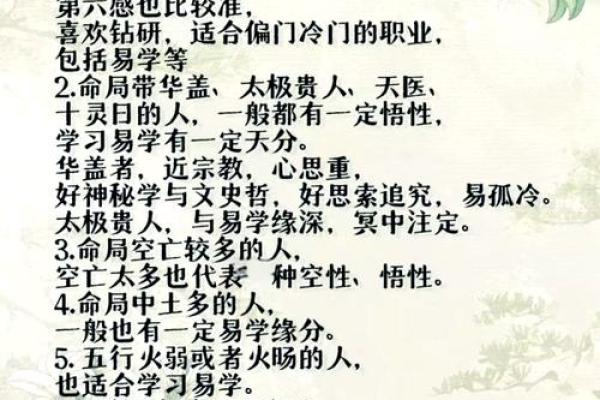 第六感也比较准，
喜欢钻研，适合偏门冷门的职业，
包括易学等
2.命局带华盖、太极贵人、天医、
十灵日的人，一般都有一定悟性，
学习易学有一定天分。
华盖者，近宗教，心思重，
好神秘学与文史哲，好思索追究，易孤冷。
太极贵人，与易学缘深，冥中注定。
3.命局空亡较多的人，
空亡太多也代表 种空性、悟性。
4.命局中土多的人，
一般也有一定易学缘分。
5.五行火弱或者火旸的人，
也适合学习易学。